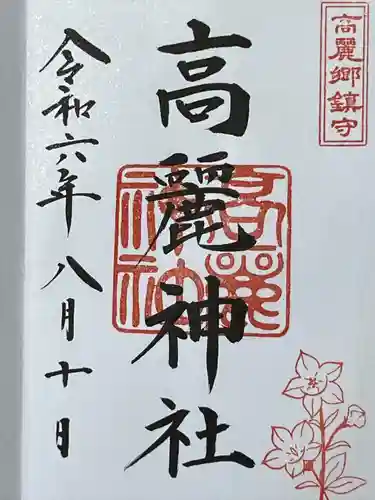 高麗郷鎮守
高麗神社
令和六年八月十日
高麗
神社